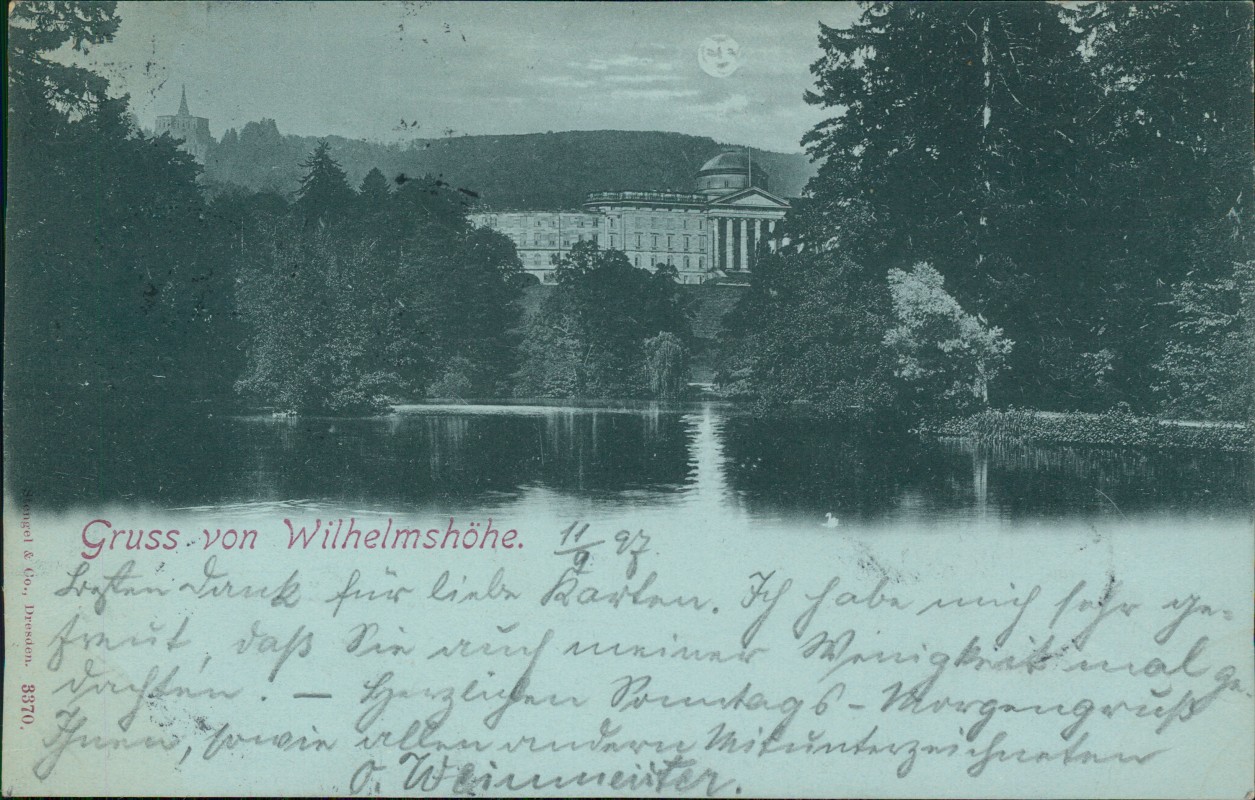 Gruss von Wilhelmshöhe. 11/9 97.
Besten Dank für liebe Karten. Ich habe mich sehr ge-
freut, daß Sie auch meiner Wenigkeit mal ge-
dachten. — Herzlichen Sonntags-Morgengruß
Ihnen, sowie allen andern Mitunterzeichneten
O. Weinmeister.
Stengel & Co., Dresden. 3370.